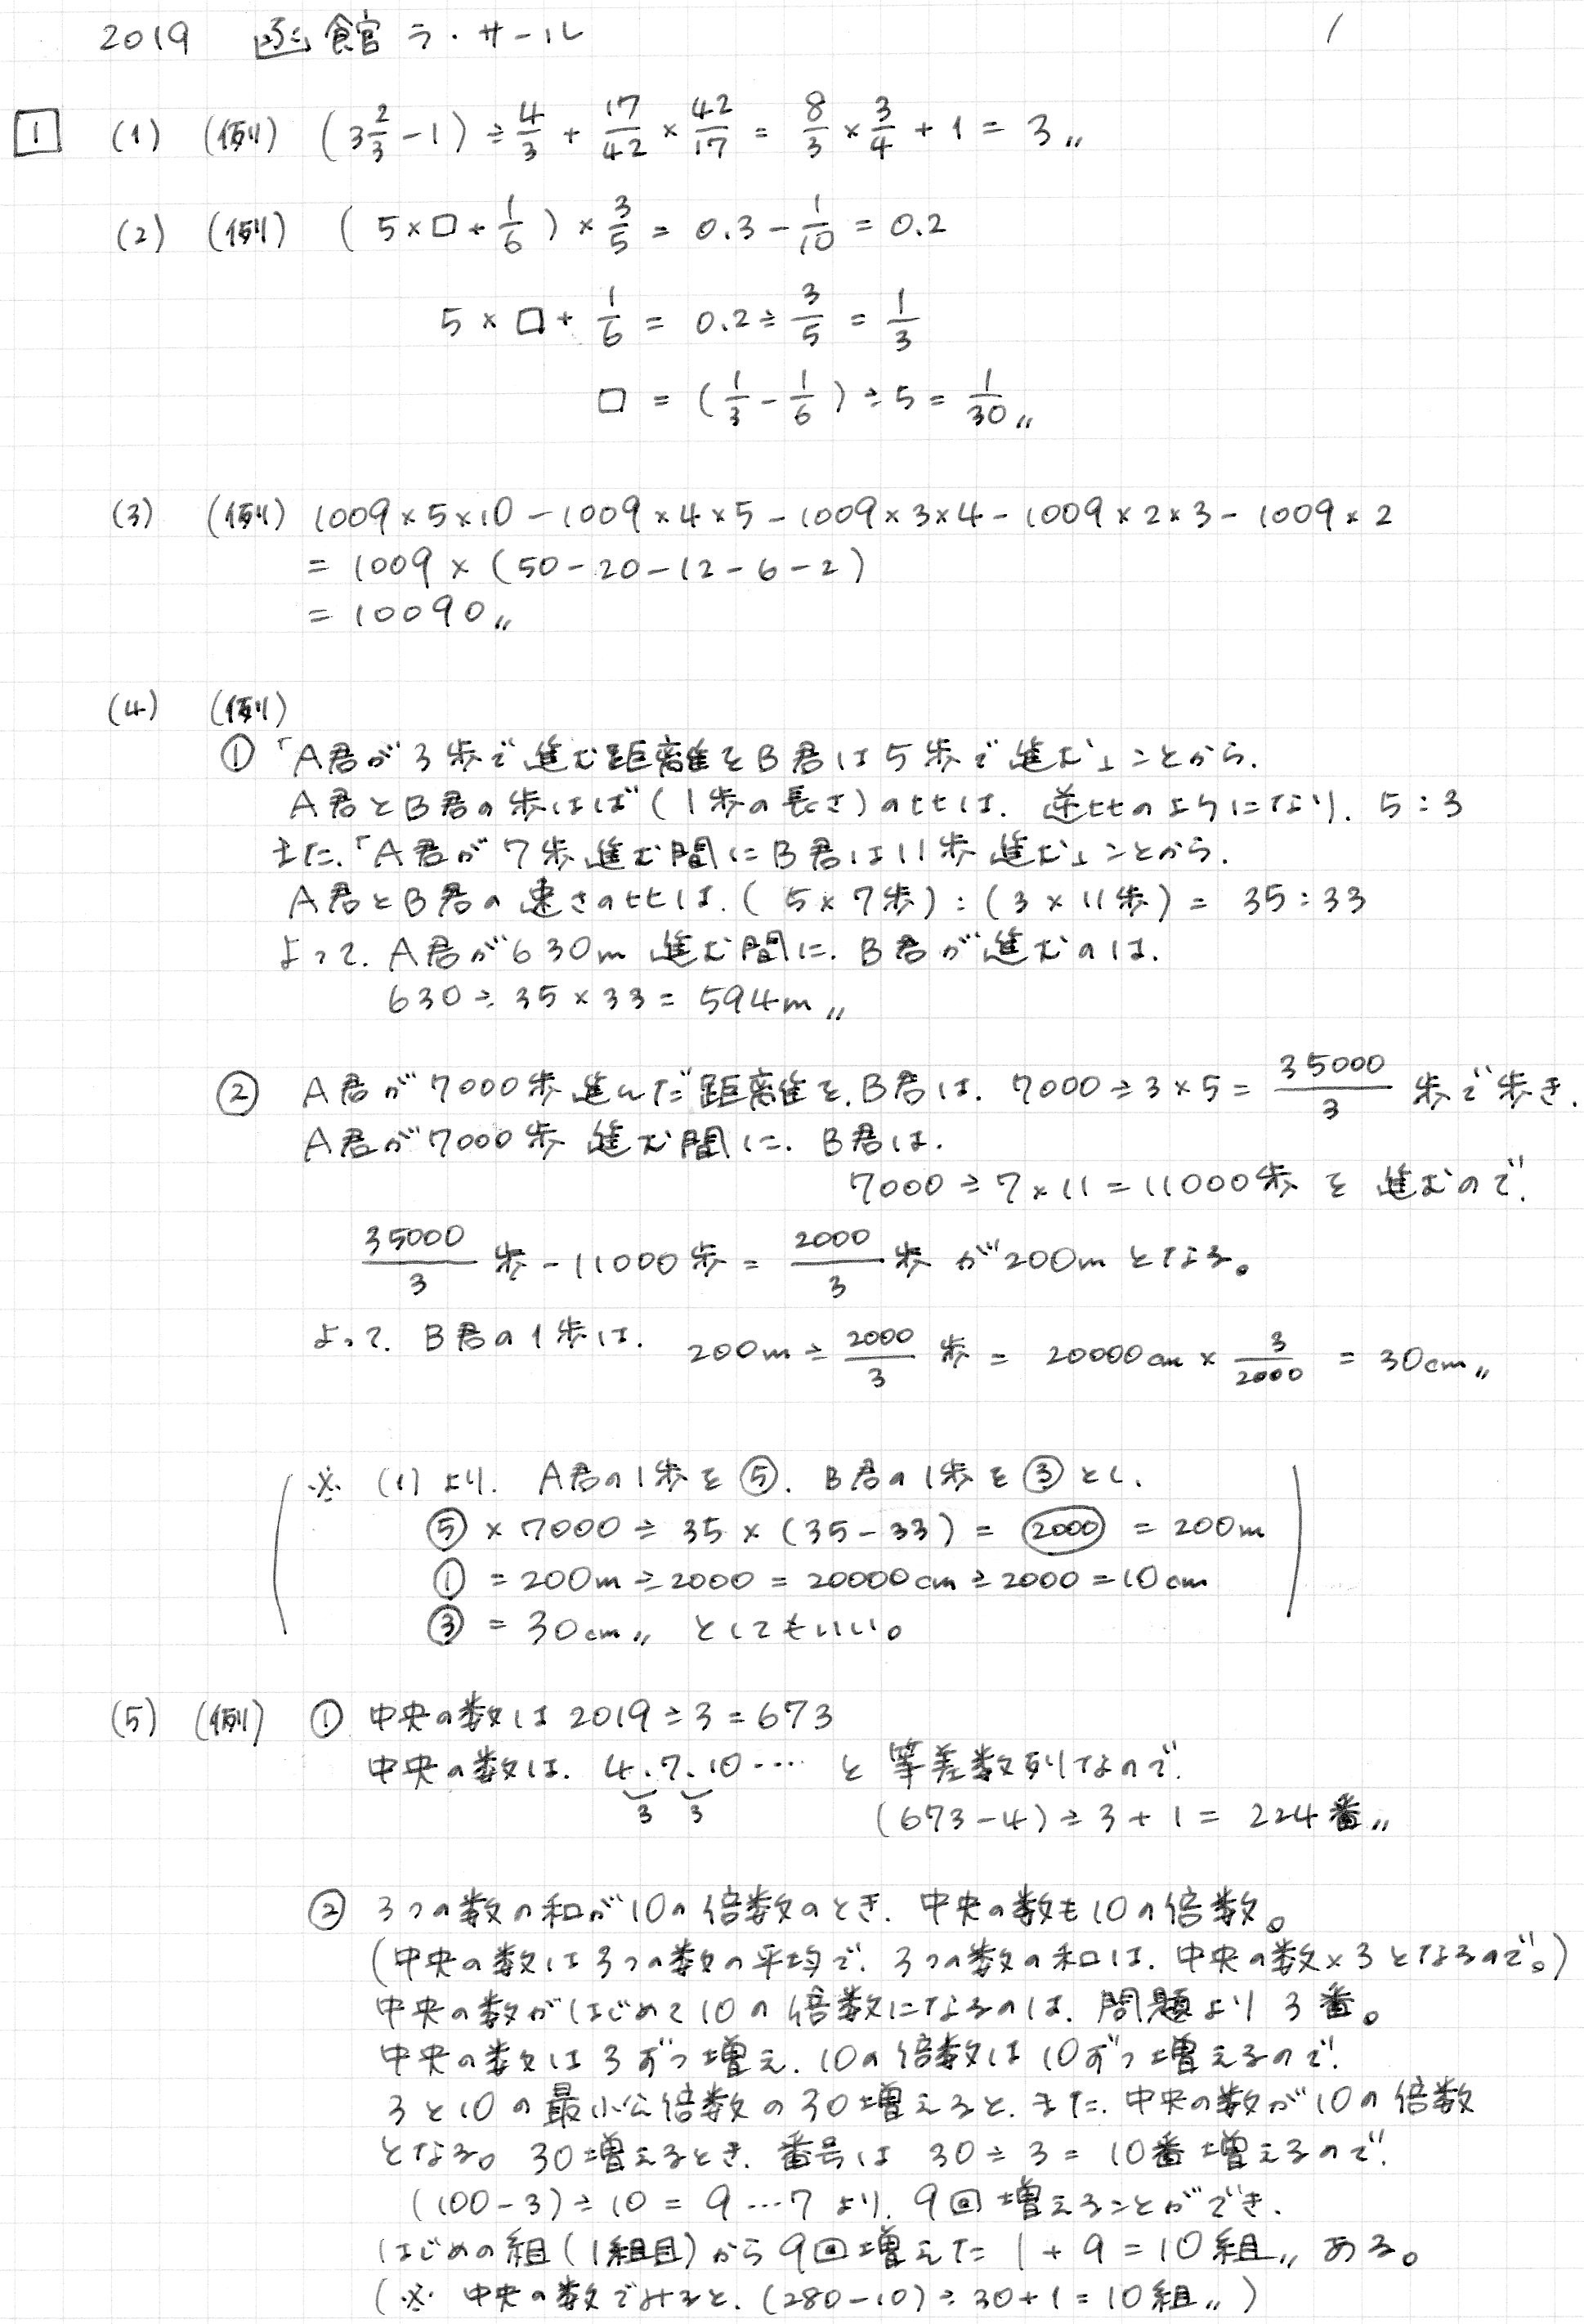 2019 函館ラ・サール 1
1 (1) (例) (3 2/3 - 1) ÷ 4/3 + 17/42 × 42/17 = 8/3 × 3/4 + 1 = 3〃
(2) (例) (5×□+1/6) × 3/5 = 0.3 - 1/10 = 0.2
5×□+1/6 = 0.2÷3/5 = 1/3
□ = (1/3 - 1/6) ÷ 5 = 1/30〃
(3) (例) 1009×5×10-1009×4×5-1009×3×4-1009×2×3-1009×2
= 1009×(50-20-12-6-2)
= 10090〃
(4) (例)
① 「A君が3歩で進む距離をB君は5歩で進む」ことから、
A君とB君の歩はば(1歩の長さ)の比は、逆比のようになり、5:3
また、「A君が7歩進む間にB君は11歩進む」ことから、
A君とB君の速さの比は、(5×7歩):(3×11歩) = 35:33
よって、A君が630m進む間に、B君が進むのは、
630÷35×33=594m〃
② A君が7000歩進んだ距離を、B君は、7000÷3×5=35000/3 歩で歩き、
A君が7000歩進む間に、B君は、
7000÷7×11=11000歩を進むので、
35000/3 歩-11000歩= 2000/3 歩が200mとなる。
よって、B君の1歩は、200m÷2000/3 歩 = 20000cm×3/2000 = 30cm〃
※ (1)より、A君の1歩を⑤、B君の1歩を③とし、
⑤×7000÷35×(35-33)=(2000)=200m
①=200m÷2000=20000cm÷2000=10cm
③=30cm〃 としてもいい。
(5) (例) ① 中央の数は2019÷3=673
中央の数は、4、7、10…… と等差数列なので、
3 3
(673-4)÷3+1=224番〃
② 3つの数の和が10の倍数のとき、中央の数も10の倍数。
(中央の数は3つの数の平均で、3つの数の和は、中央の数×3となるので。)
中央の数がはじめて10の倍数になるのは、問題より3番。
中央の数は3ずつ増え、10の倍数は10ずつ増えるので、
3と10の最小公倍数の30増えると、また、中央の数が10の倍数
となる。30増えるとき、番号は30÷3=10番増えるので、
(100-3)÷10=9…7より、9回増えることができ、
はじめの組(1組目)から9回増えた1+9=10組〃ある。
(※ 中央の数でみると、(280-10)÷30+1=10組〃)